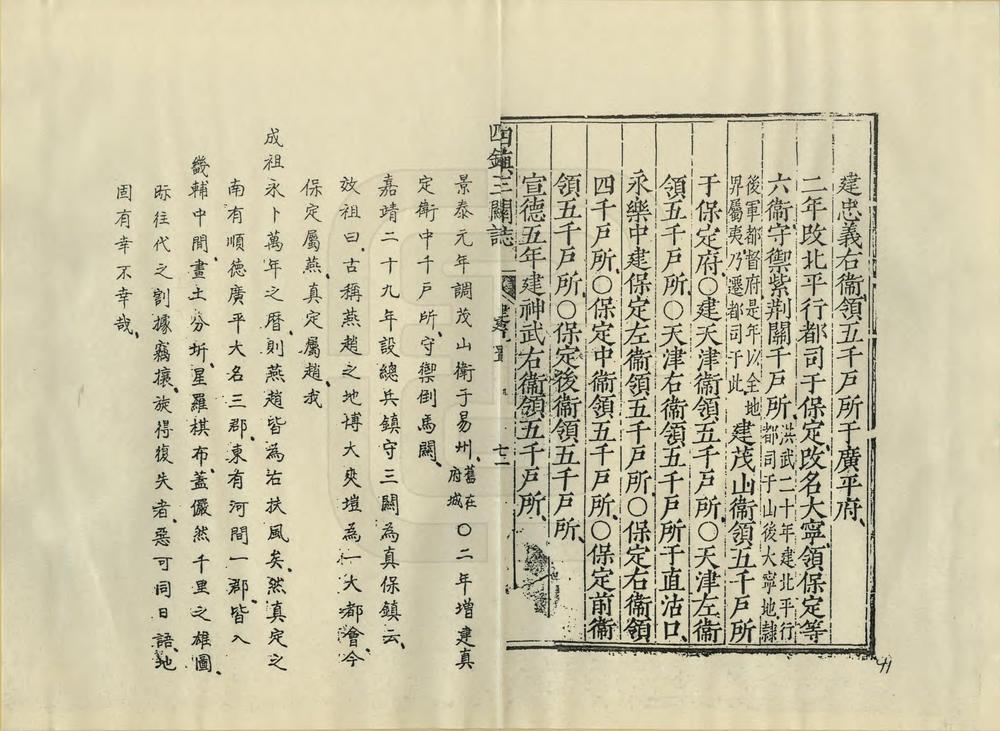 建忠義右衞領五千戶所于廣平府
二年改北平行都司于保定改名大寧領保定等
六衞守禦紫荆關千戶所洪武二十年建北平行
都司于山後大寧地隷
後軍都督府是年以全地
界屬夷乃遷都司于此建茂山衞領五千戶所
于保定府〇建天津衞領五千戶所〇天津左衞
領五千戶所〇天津右衞領五千戶所于直沽口
永樂中建保定左衞領五千戶所〇保定右衞領
四千戶所〇保定中衞領五千戶所〇保定前衞
領五千戶所〇保定後衞領五千戶所
宣德五年建神武右衞領五千戶所
四鎮三關誌 建置 七一
景泰元年調茂山衛于易州舊在
府城〇二年增建真
定衛中千戶所守禦倒馬關
嘉靖二十九年設總兵鎮守三關為真保鎮云
效祖曰古稱燕趙之地博大爽塏為一大都會今
保定屬燕真定屬趙我
成祖永卜萬年之曆則燕趙皆為沽扶風矣然真定之
南有順德廣平大名三郡東有河間一郡皆入
畿輔中間畫土分圻星羅棋布蓋儼然千里之雄圖
眎往代之割據竊攘旋得復失者惡可同日語地
固有幸不幸哉
41